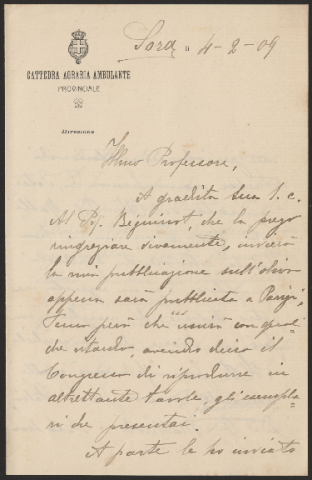 Sora li 4-2-09
CATTEDRA AGRARIA AMBULANTE
PROVINCIALE
Direzione
Illmo Professore,
A gradita Sua s. c.
Al Pr. Béguinot, che la prego
ringraziare vivamente, invierò
la mia pubblicazione sull'olivo
appena sarà pubblicata a Parigi;
temo però che uscirà con qual
che ritardo, avendo deciso il
Congresso di riprodurre in
altrettante tavole, gli esempla-
ri che presentai.
A parte le ho inviato